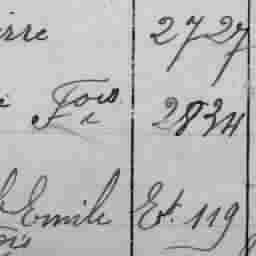 irre 2727
Fois 2834
Emile Et. 119